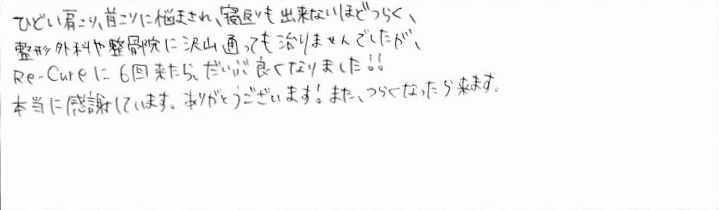 ひどい肩こり、首こりに悩まされ、寝返りも出来ないほどつらく、
整形外科や整骨院に沢山通っても治りませんでしたが、
Re-Cureに6回来たら、だいぶ良くなりました!!
本当に感謝しています。ありがとうございます!また、つらくなったら来ます。